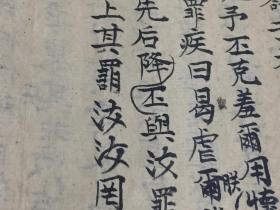 予丕克羞爾用懷
罪疾曰曷虐爾
朕
先后降丕與汝罪
上其罰汝汝罔